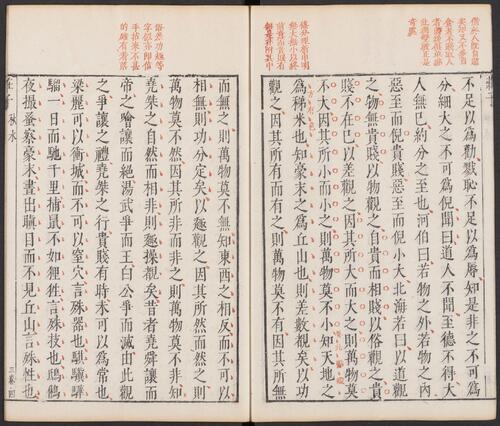 不足以為勸戮恥不足以為辱知是非之不可為
分細大之不可為倪聞曰道人不聞至德不得大
人無己約分之至也河伯曰若物之外若物之內
惡至而倪貴賤惡至而倪小大北海若曰以道觀
之物無貴賤以物觀之自貴而相賤以俗觀之貴
賤不在己以差觀之因其所大而大之則萬物莫
不大因其所小而小之則萬物莫不小知天地之
為稊米也知豪末之為丘山也則差數覩矣以功
觀之因其所有而有之則萬物莫不有因其所無
而無之則萬物莫不無知東西之相反而不可以
相無則功分定矣以趣觀之因其所然而然之則
萬物莫不然因其所非而非之則萬物莫不非知
堯桀之自然而相非則趣操覩矣昔者堯舜讓而
帝之噲讓而絕湯武爭而王白公爭而滅由此觀
之爭讓之禮堯桀之行貴賤有時未可以為常也
梁麗可以衝城而不可以窒穴言殊器也騏驥驊
騮一日而馳千里捕鼠不如狸狌言殊技也鴟鵂
夜撮蚤察豪末晝出瞋目而不見丘山言殊性也
莊子 秋水
三卷 四